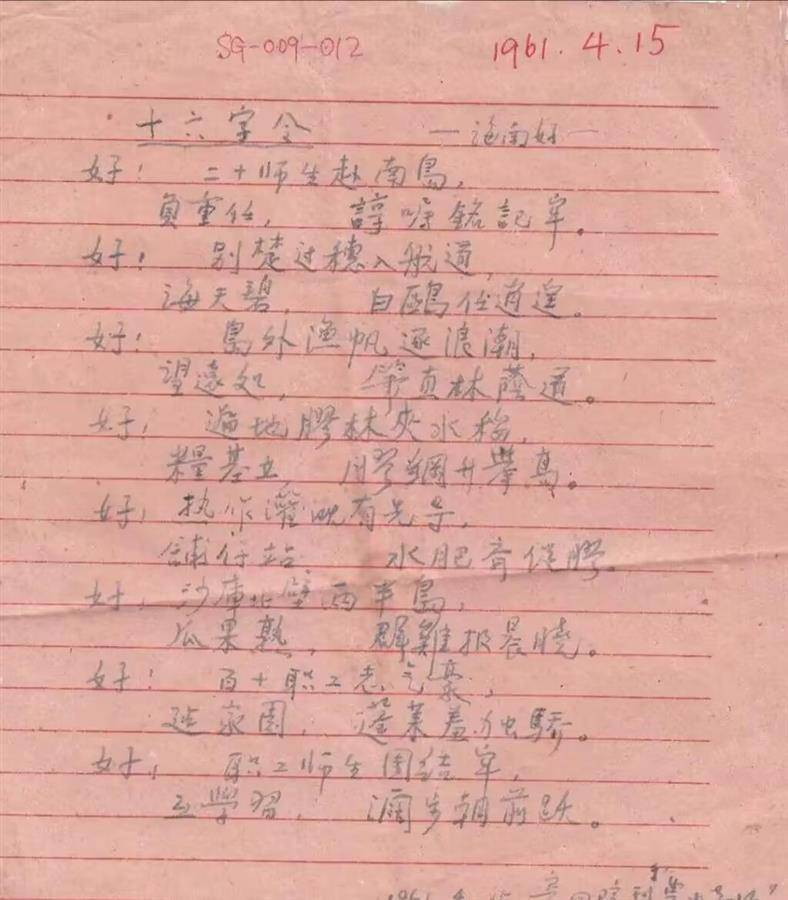 SG-009-012 1961.4.15
十六字令 —海南好—
好！ 二十师生赴南島，
負重任， 諄嘱銘記牢。
好！ 别楚过穗入航道，
海天碧， 白鷗任逍遥。
好！ 島外漁帆逐浪潮，
望遠処， 林蔭道。
好！ 遍地膠林夾水稻，
糧基立， 膠鋼升擧島。
好！ 热作灌溉有先导，
站 水肥齊促膠。
好！ 沙庫北壁两半島，
瓜果熟， 群雞报晨曉。
好！ 百十职工志气豪，
建家園， 蓬萊羞独驕。
好！ 职工师生团结牢，
互學習， 濶步朝前跃。
1961.4